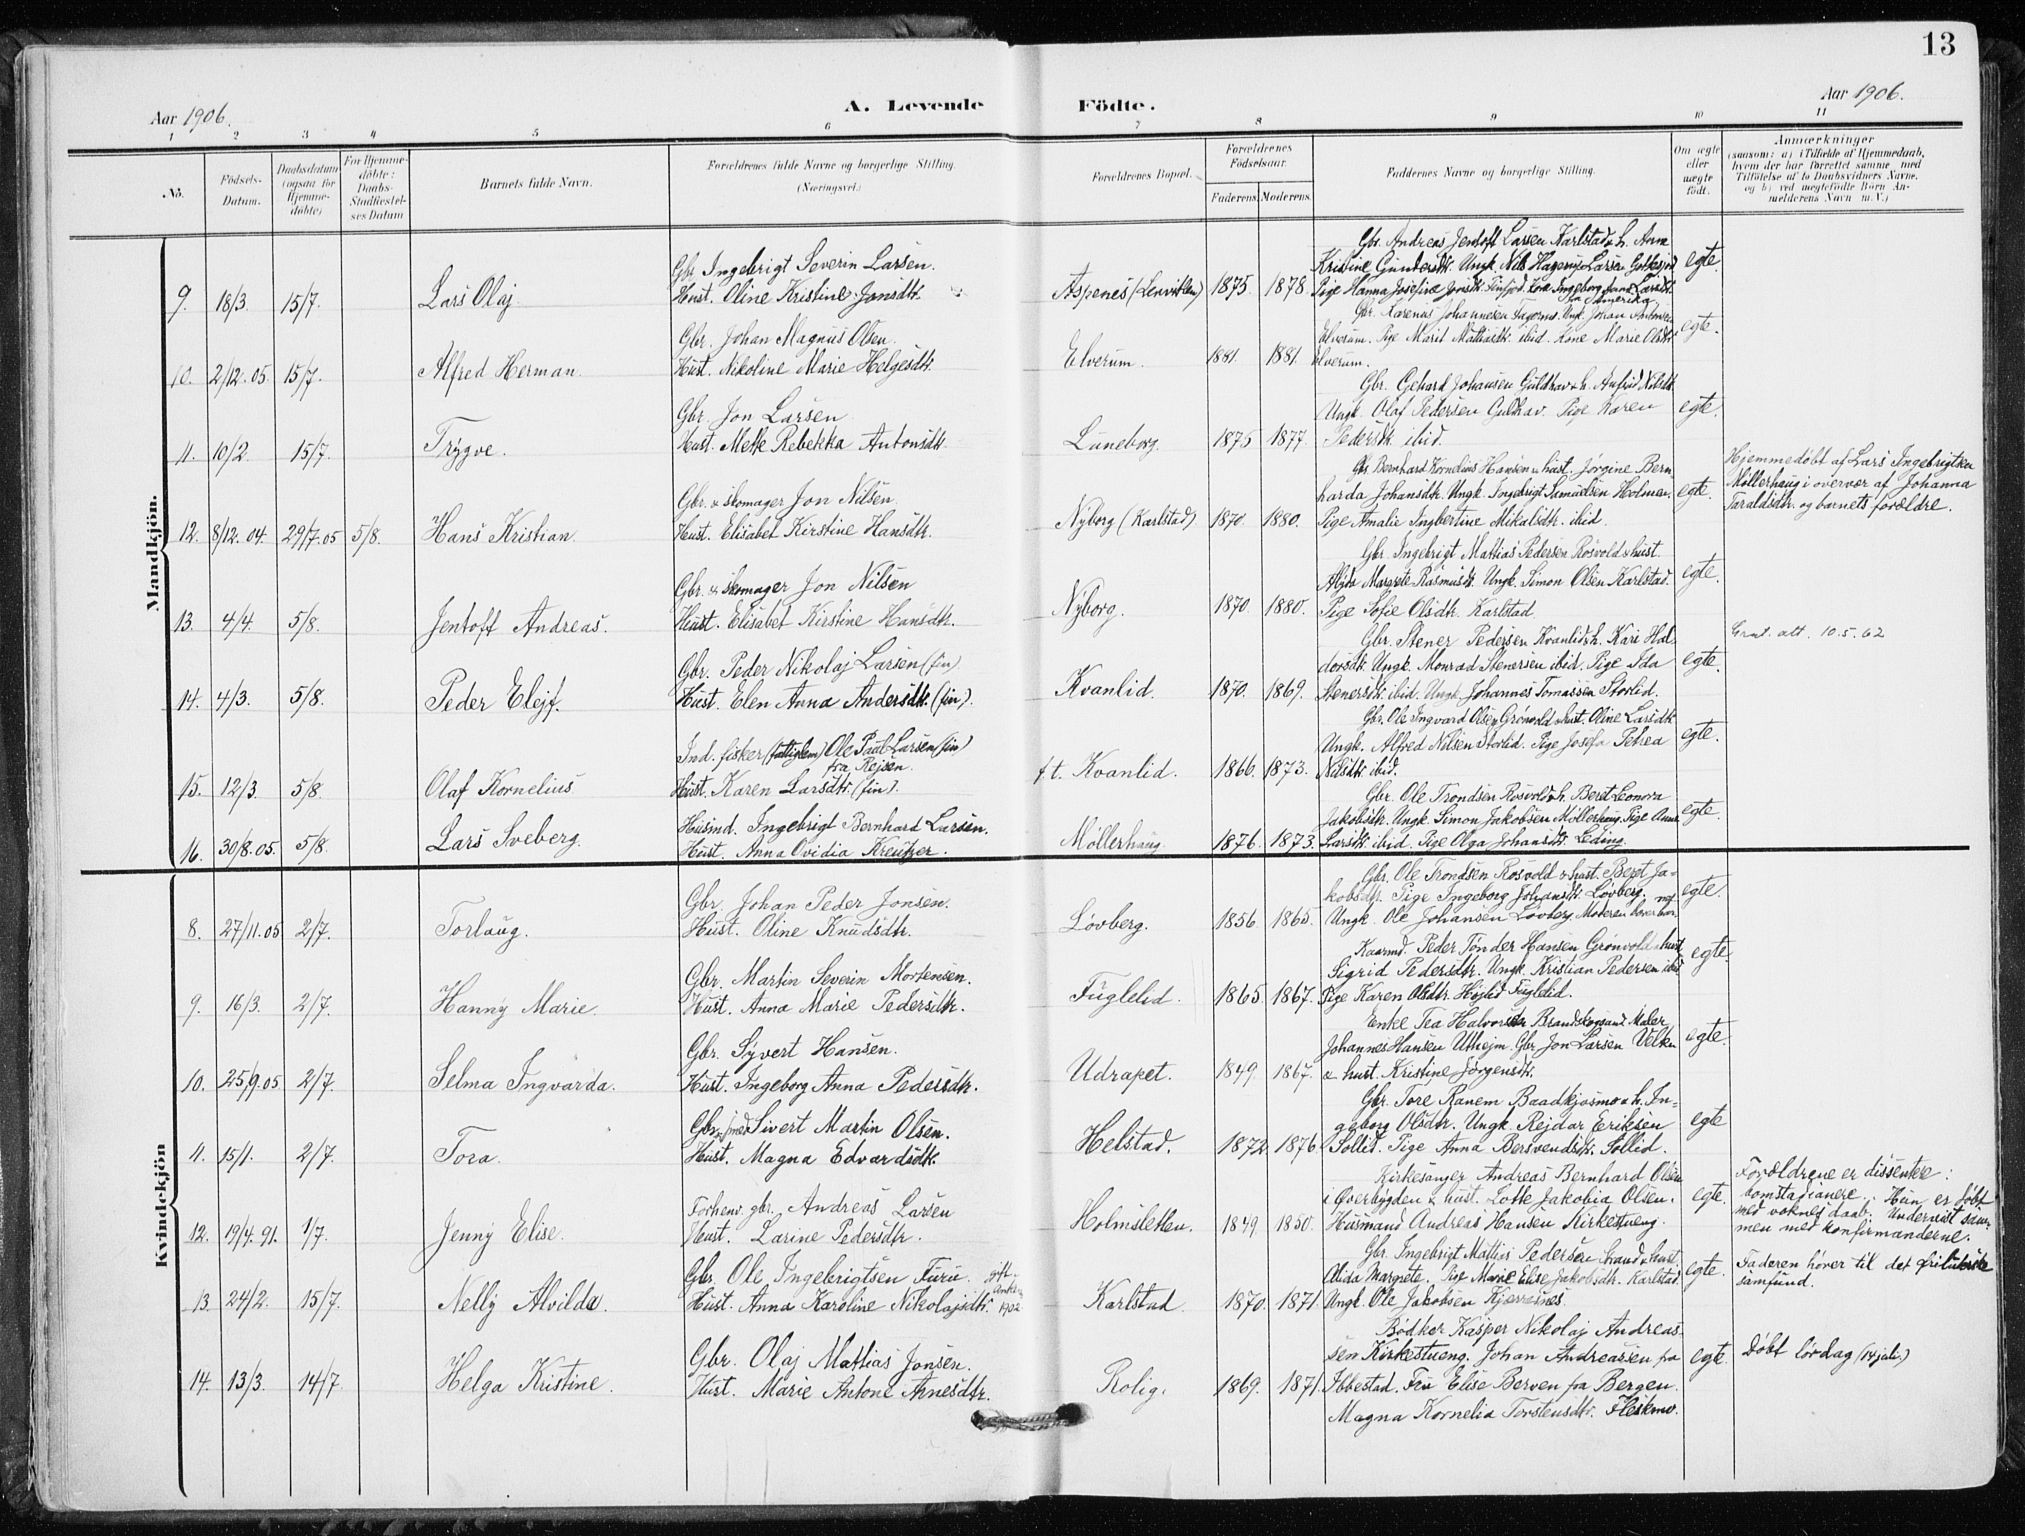 13
Aar 1906.
A. Levende Födte.
Aar 1906.
1 2 3 4 5 6 7 8 9 10 11
No.
Födsels-Datum.
Daabsdatum (ogsaa for Hjemme-döbte)
For Hjemme-döbte: Daabs-Stadfæstel-ses Datum
Barnets fulde Navn.
Forældrenes fulde Navne og borgerlige Stilling. (Næringsvei.)
Forældrenes Bopæl.
Forældrenes Födselsaar.
Faderens. Moderens.
Faddernes Navne og borgerlige Stilling.
Om ægte eller uægte födt.
Anmærkninger
(saasom: a) i Tilfælde af Hjemmedaab, hvem der har forrettet samme, med Tilföielse af to Daabsvidners Navne, og b) ved uægtefödte Börn An-melderens Navn m.V.)
Mandkjön.
Gbr. Ingebrigt Severin Larsen.
9. 18/3 15/7. Lars Olaj Hust. Oline Kristine Jonsdtr. Aspenes (Lenvikien) 1875 1878
Gbr. Andreas Jentoft Larsen Karlstad & h. Anna
Kristine Gundersdtr. Ungk. Nils Hagerup Larsen
Pige Hanna Josefine Jonsdtr. egte.
Gbr. Johan Magnus Olsen
10. 2/12.05. 15/7. Alfred Herman Hust. Nikoline Marie Helgesdtr. Elverum. 1881. 1881.
Gbr. Karenus Johannesen Ungk. Johan Antonsen
Elverum. Pige Marit Mathiasdtr. ibid. Kone Marie Olsdtr.
Elverum. egte.
Gbr. Jon Larsen
11. 10/2. 15/7. Trygve. Hust. Mette Rebekka Antonsdtr. Luneborg. 1875 1877.
Gbr. Gehard Johansen Guldhav & h. Anfrid Nilsdtr.
Ungk. Olaf Pedersen Gulhav. Pige Karen
Pedersdtr. ibid. egte.
Gbr. & skomager Jon Nilsen
12. 8/12.04. 29/7.05 5/8. Hans Kristian Hust. Elisabet Kirstine Hansdtr. Nyborg (Karlstad) 1870. 1880.
Gbr. Bernhard Kornelius Hansen & hust. Jørgine Bern-
harda Johansdtr. Ungk. Ingebrigt Samuelsen Holmen.
Pige Amalie Ingbertine Mikalsdtr. ibid. egte.
Hjemmedøbt af Lars Ingebrigtsen
Møllerhaug i overvær af Johanna
Taraldsdtr. og barnets forældre.
Gbr. & skomager Jon Nilsen
13. 4/4. 5/8. Jentoft Andreas. Hust. Elisabet Kirstine Hansdtr. Nyborg. 1870. 1880.
Gbr. Ingebrigt Mattias Pedersen Rosvold & hust.
Alida Margrete Rasmusdtr. Ungk. Simon Olsen Karlstad.
Pige Sofie Olsdtr. Karlstad egte.
att. 10.5.62
Gbr. Peder Nikolaj Larsen (fin)
14. 4/3. 5/8. Peder Elejf. Hust. Elen Anna Andersdtr. (fin). Kvanlid. 1870. 1869.
Gbr. Stener Pedersen Kvanlid & h. Kari Hal-
dorsdtr. Ungk. Monrad Stenersen ibid. Pige Ida
Stenersdtr. ibid. Ungk. Johannes Tomassen Storlid. egte.
Ind. fisker (fattiglem) Ole Paul Larsen (fin)
fra Rejsen.
15. 12/3. 5/8. Olaf Kornelius Hust. Karen Larsdtr. (fin). f.t. Kvanlid. 1866. 1873.
Gbr. Ole Ingvard Olsen Grønvold & hust. Oline Larsdtr.
Ungk. Alfred Nilsen Storlid. Pige Josefa Petrea
Nilsdtr. ibid. egte.
Husmd. Ingebrigt Bernhard Larsen.
16. 30/8.05. 5/8. Lars Sveberg. Hust. Anna Ovidia Kreutzer. Møllerhaug 1876. 1873.
Gbr. Ole Trondsen Rosvold & h. Beret Leonora
Jakobsdtr. Ungk. Simon Jakobsen Møllerhaug. Pige Anna
Larsdtr. ibid. Pige Olga Johansdtr. Leding. egte.
Kvindekjön
Gbr. Johan Peder Jonsen.
8. 27/11.05 2/7. Torlaug. Hust. Oline Knudsdtr. Løvberg. 1856 1865.
Gbr. Ole Trondsen Rosvold & hust. Beret Ja-
kobsdtr. Pige Ingeborg Johansdtr. Løvberg.
Ungk. Ole Johansen Løvberg. Moderen egte.
Gbr. Martin Severin Mortensen.
9. 16/3. 2/7. Hanny Marie. Hust. Anna Marie Pedersdtr. Fuglelid. 1865. 1867.
Kaarmd. Peder Tønder Hansen Grønvold & hust.
Sigrid Pedersdtr. Ungk. Kristian Pedersen ibid
Pige Karen Olsdtr. Højlid Fuglelid. egte.
Gbr. Syvert Hansen.
10. 25/9.05 2/7. Selma Ingvarda. Hust. Ingeborg Anna Pedersdtr. Udrapet. 1849. 1867.
Enke Tea Halvorsdtr. Brandskogsand. Maler
Johannes Hansen Utheim. Gbr. Jon Larsen
& hust. Kristine Jørgensdtr. egte.
Gbr. Sivert Martin Olsen.
11. 15/1. 2/7. Tora. Hust. Magna Edvardsdtr. Helstad. 1872 1876
Gbr. Tore Ranem Baadkjosmo & h. In-
geborg Olsdtr. Ungk. Rejdar Eriksen
Sollid. Pige Anna Bersvendsdtr. Sollid. egte
Forhenv. gbr. Andreas Larsen
12. 19/4.91. 1/7. Jenny Elise. Hust. Larine Pedersdtr. Holmsletten. 1849. 1850.
Kirkesanger Andreas Bernhard Olsen
i Øverbygden & hust. Lotte Jakobia Olsen.
Husmand Andreas Hansen Kirkestueng. egte.
Forældrene er dissentere:
Hun er døbt
med voknes daab. Undervist sam-
men med konfirmanderne.
Gbr. Ole Ingebrigtsen Furu. gift 1902
13. 24/2. 15/7. Nelly Alvilda. Hust. Anna Karoline Nikolajsdtr. Karlstad 1870. 1871.
Gbr. Ingebrigt Mattias Pedersen & hust.
Alida Margrete. Pige Marie Elise Jakobsdtr. Karlstad
Ungk. Ole Jakobsen Kjærresnes. egte.
Faderen hører til det frilutherske
samfund.
Gbr. Olaj Mattias Jonsen.
14. 13/3. 14/7. Helga Kristine. Hust. Marie Antone Arnesdtr. Rolig. 1869. 1871.
Bødker Kasper Nikolaj Andreas-
sen Kirkestueng. Johan Andreassen fra
Ibbestad. Fru Elise Berven fra Bergen.
Magna Kornelia Torstensdtr. egte.
Døbt lørdag (14 juli.)